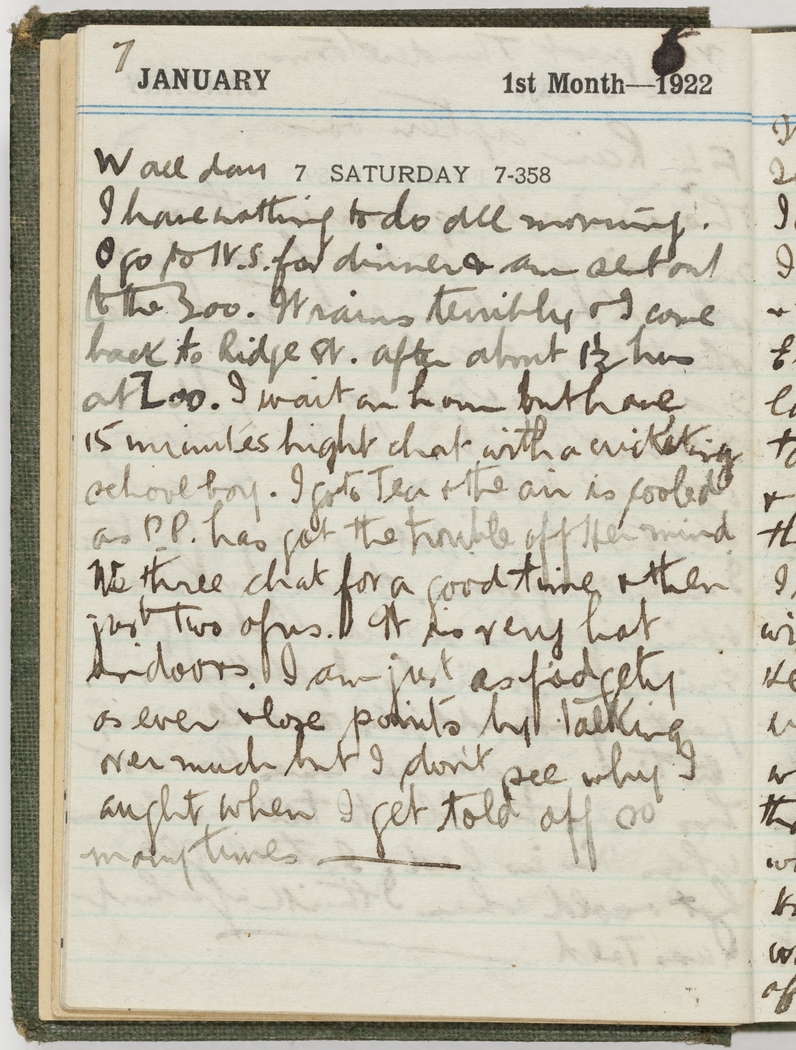 7
JANUARY 1st Month—1922
W all day 7 SATURDAY 7-358
I have nothing to do all morning.
I go to W.S. for dinner & am set out
to the Zoo. It rains terribly & I come
back to Ridge St. after about 1½ hrs
at Zoo. I wait an hour but have
15 minutes hight chat with a cricketing
schoolboy. I go to Tea & the air is cooled
as P.P. has got the trouble off Her mind
We three chat for a good time & then
just two of us. It is very hot
indoors. I am just as fidgety
as ever & lose points by talking
over much but I don't see why I
aught when I get told off so
many times